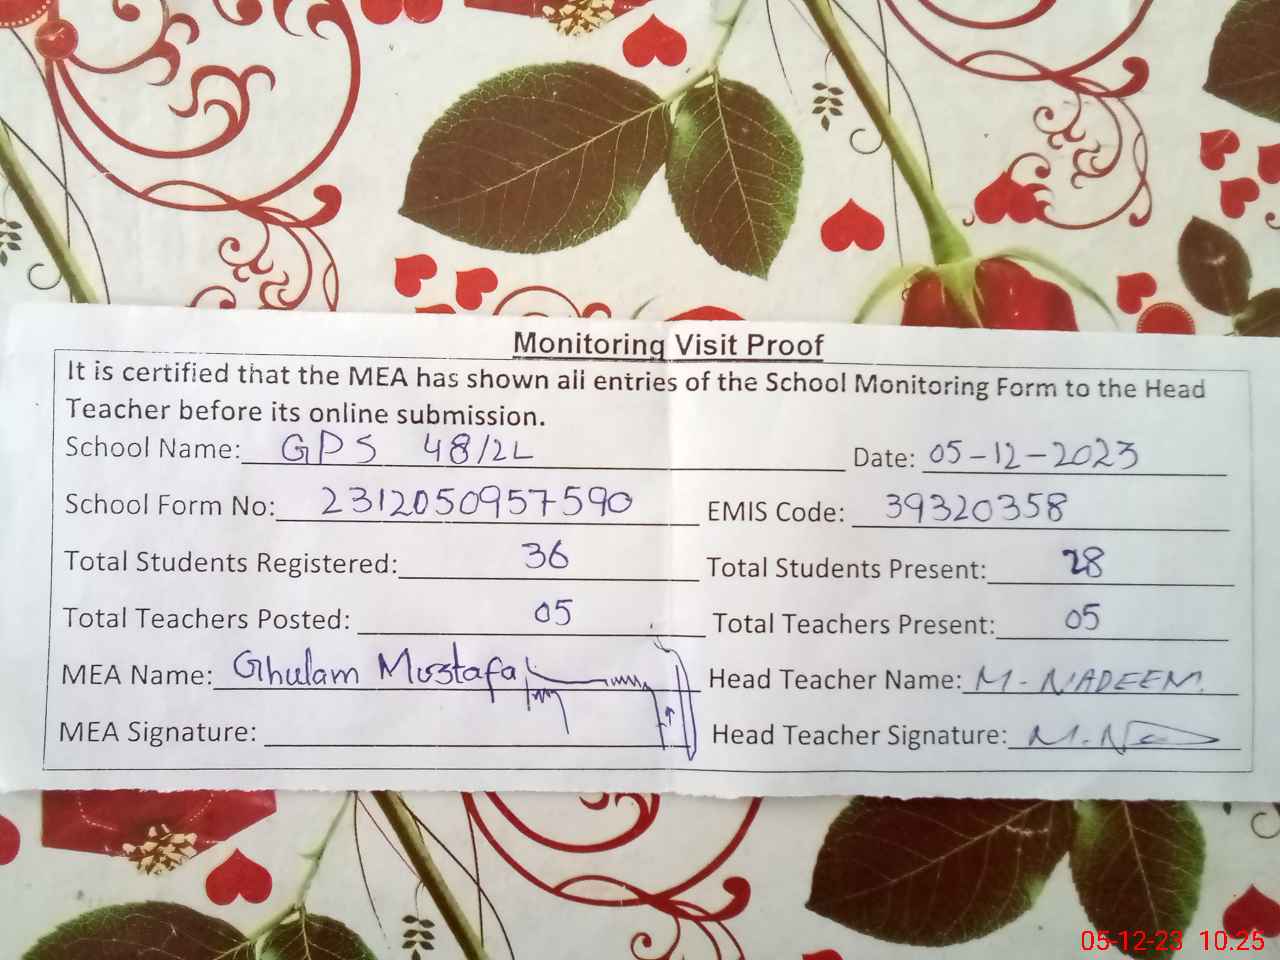 Monitoring Visit Proof
It is certified that the MEA has shown all entries of the School Monitoring Form to the Head
Teacher before its online submission.
School Name: GPS 48/2L Date: 05-12-2023
School Form No: 2312050957590 EMIS Code: 39320358
Total Students Registered: 36 Total Students Present: 28
Total Teachers Posted: 05 Total Teachers Present: 05
MEA Name: Ghulam Mustafa Head Teacher Name: M. NADEEM.
MEA Signature: Head Teacher Signature:
05-12-23 10.25